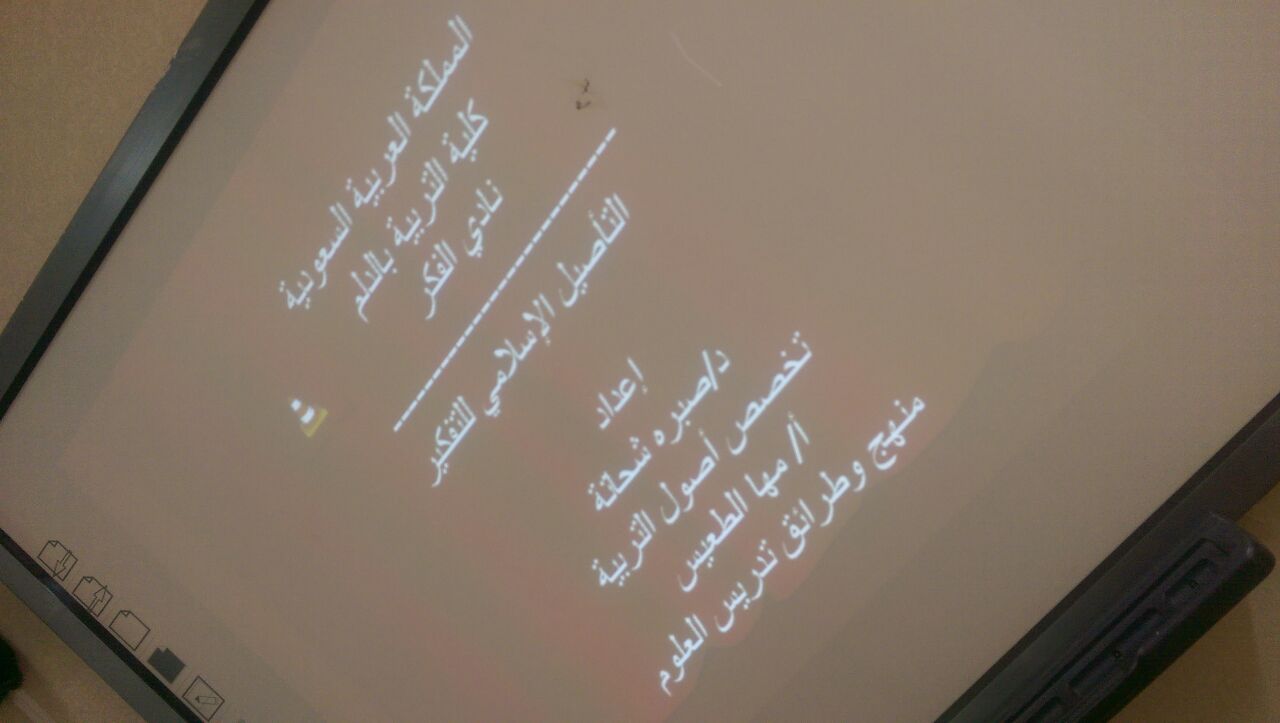 المملكة العربية السعودية
كلية التربية بالدلم
نادي الفكر
التأصيل الإسلامي للتفكير
إعداد
د/صبره شحاتة
تخصص أصول التربية
أ/ مها الطعيس
منهج وطرائق تدريس العلوم